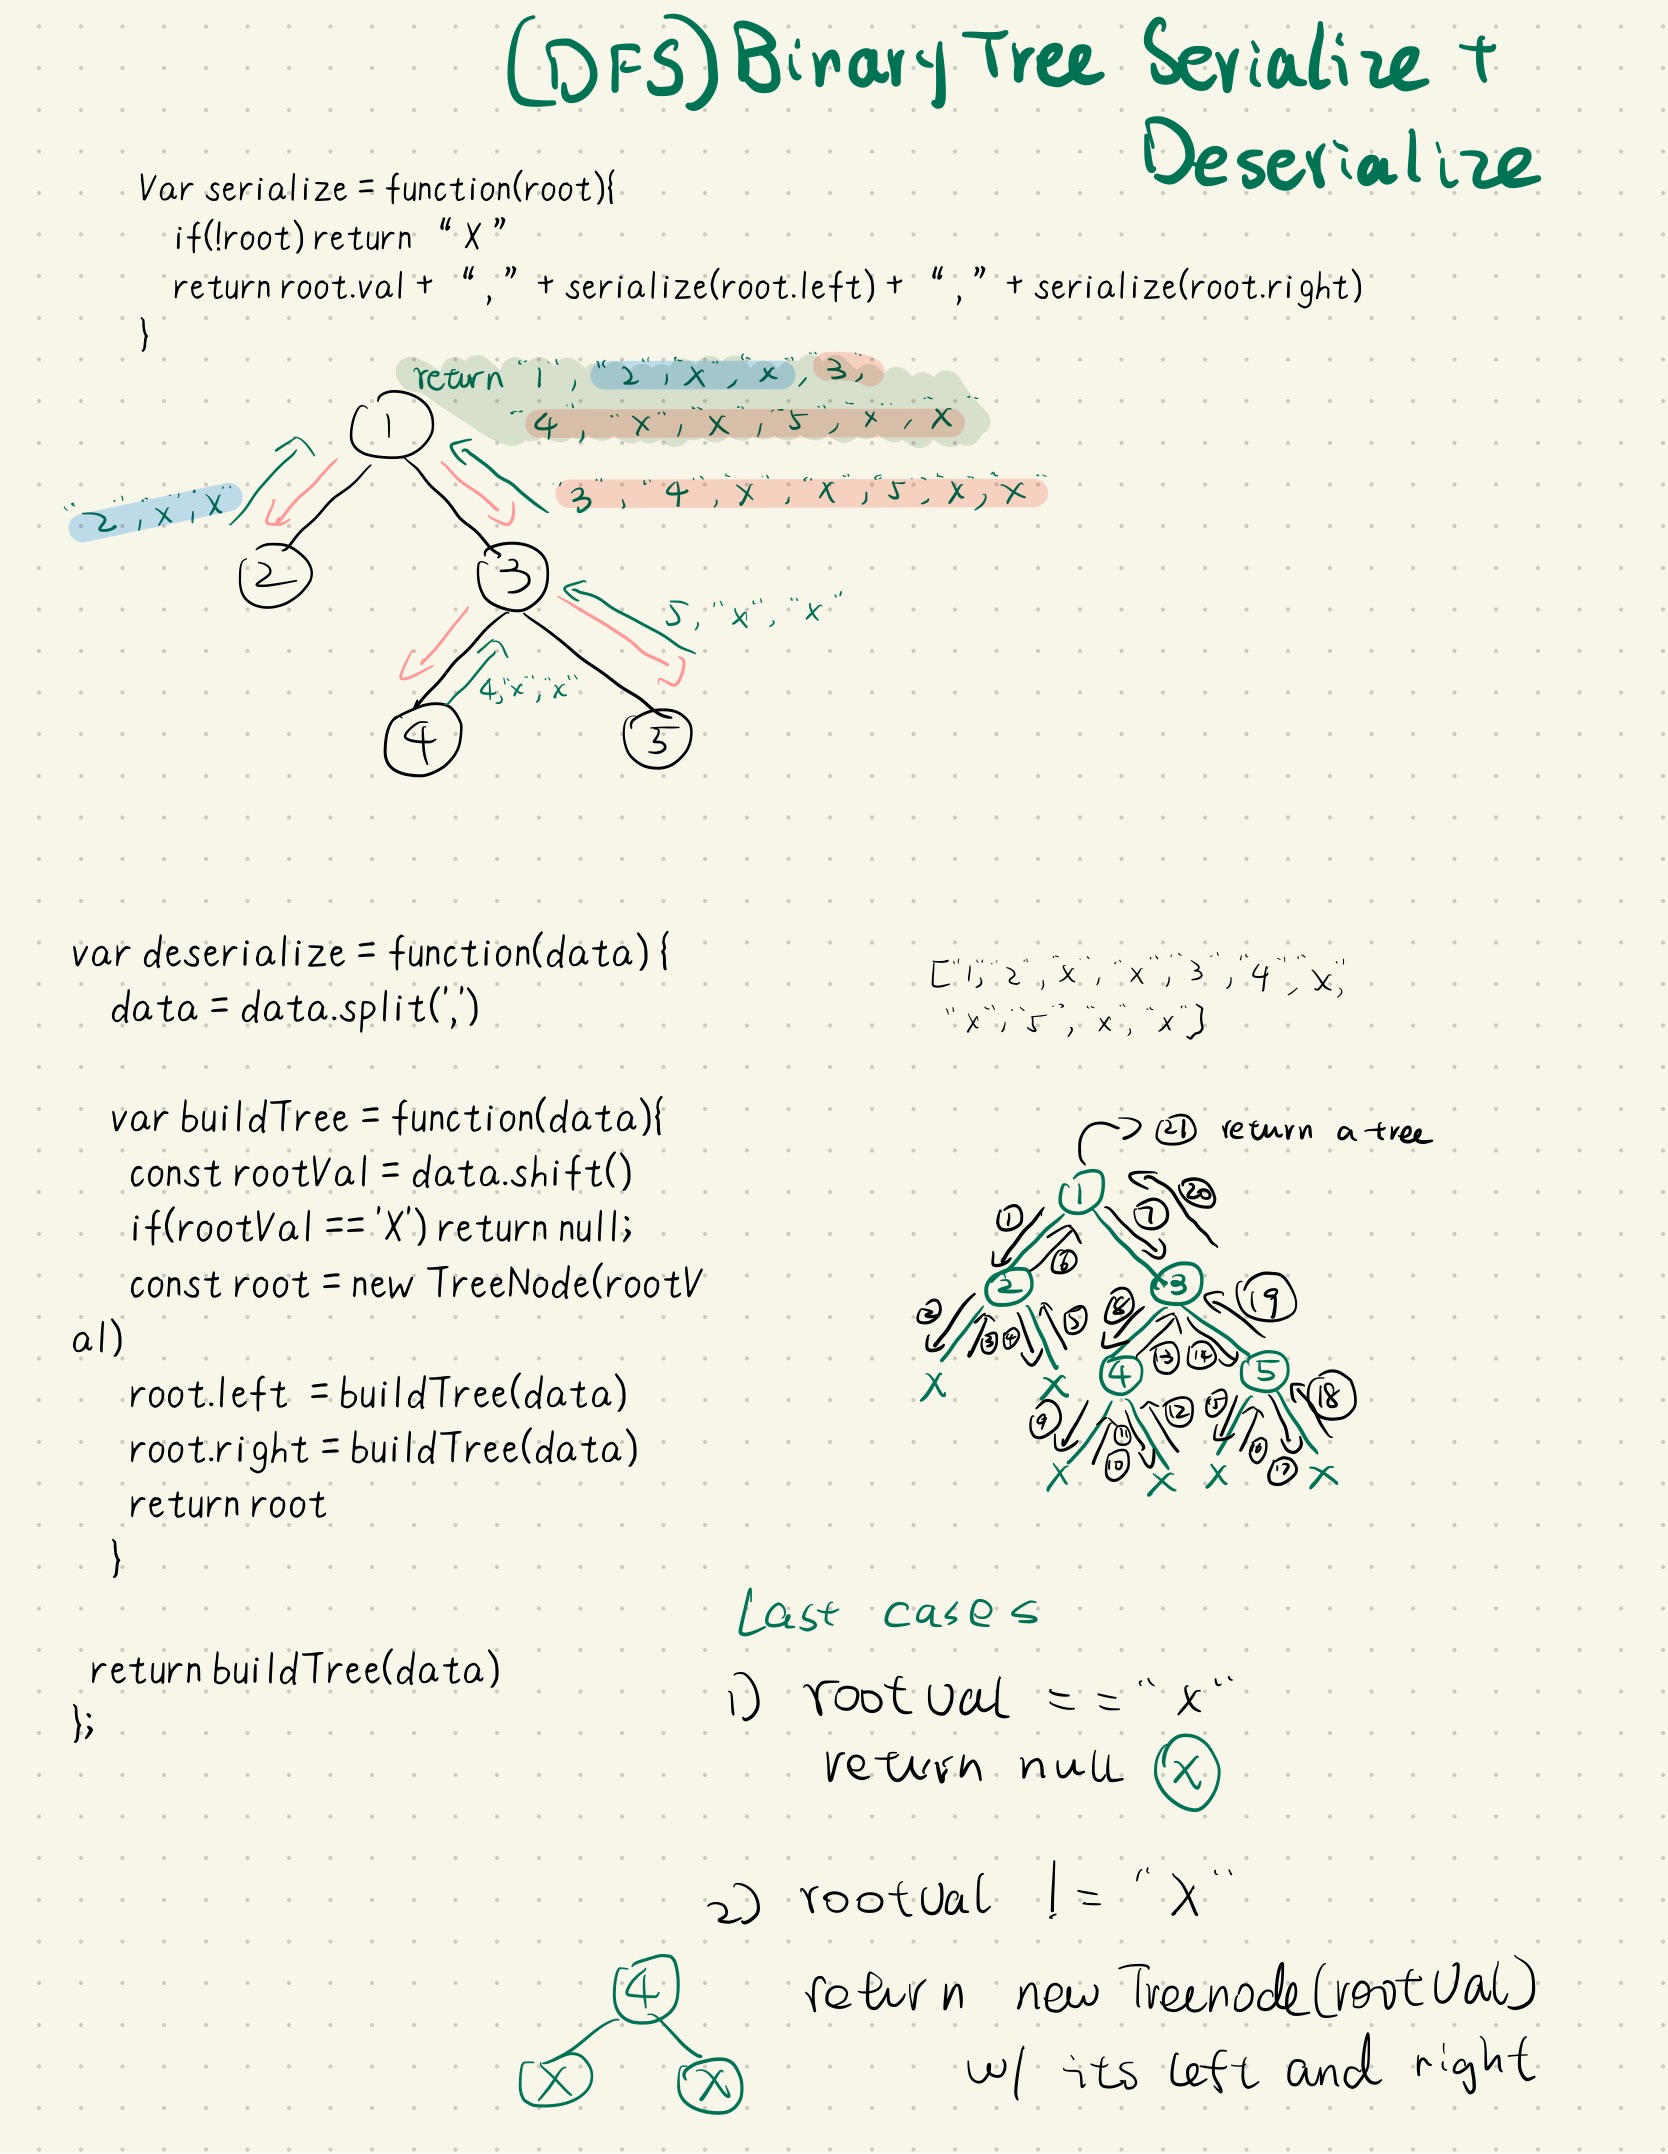 (DFS) Binary Tree Serialize +
Deserialize
Var serialize = function(root){
if(!root) return “ X ”
return root.val + “ , ” + serialize(root.left) + “ , ” + serialize(root.right)
}
return "1", "2", "X", "X", "3,
"4", "X", "X", "5", "X", "X"
1
"2", "X", "X"
"3", "4", "X", "X", "5", "X", "X"
2
3
5, "X", "X"
4, "X", "X"
4
5
var deserialize = function(data) {
data = data.split(',')
["1", "2", "X", "X", "3", "4", "X",
"X", "5", "X", "X"]
var buildTree = function(data){
const rootVal = data.shift()
if(rootVal == 'X') return null;
const root = new TreeNode(rootV
al)
root.left = buildTree(data)
root.right = buildTree(data)
return root
}
return buildTree(data)
};
21 return a tree
1
1 6 7 20
2 3
2 3 4 5 8 13 14 19
X X 4 5
9 10 11 12 15 16 17 18
X X X X
Last cases
1) rootval == "X"
return null X
2) rootval != "X"
return new Treenode(rootVal)
w/ its left and right
4
X X